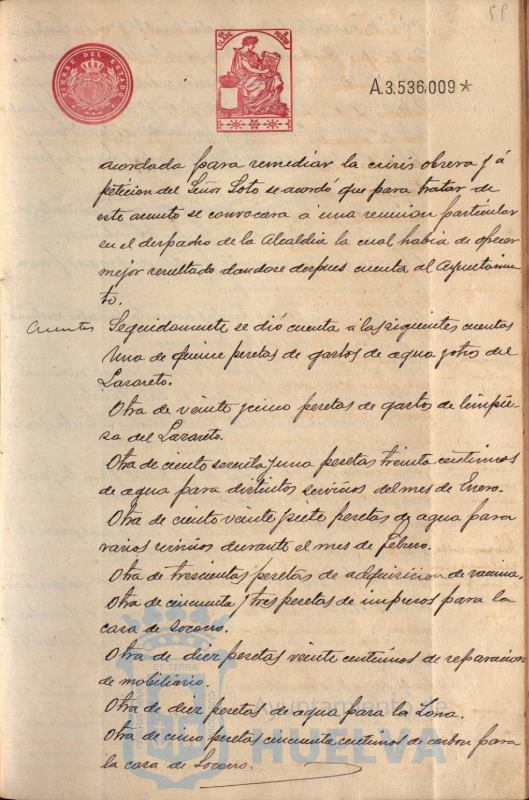 58
TIMBRE DEL ESTADO
A.3.536,009*
acordada para remediar la crisis obrera y á
petición del Señor Soto se acordó que para tratar de
este asunto se convocara á una reunion particular
en el despacho de la Alcaldia la cual habia de ofrecer
mejor resultado dandose despues cuenta al Ayuntamien-
to.
Cuentas Seguidamente se dió cuenta á las siguientes cuentas
Una de quince pesetas de gastos de agua y otros del
Lazareto.
Otra de veinte y cinco pesetas de gastos de limpie-
sa del Lazareto.
Otra de ciento sesenta y una pesetas treinta centimos
de agua para distintos servicios del mes de Enero.
Otra de ciento veinte y siete pesetas de agua para
varios servicios durante el mes de Febrero.
Otra de trescientas pesetas de adquisicion de vacuna.
Otra de cincuenta y tres pesetas de impresos para la
casa de socorro.
Otra de diez pesetas veinte centimos de reparacion
de mobiliario.
Otra de diez pesetas de agua para la Lona.
Otra de cinco pesetas cincuenta centimos de carbon para
la casa de Socorro.
Ayuntamiento de
HUELVA